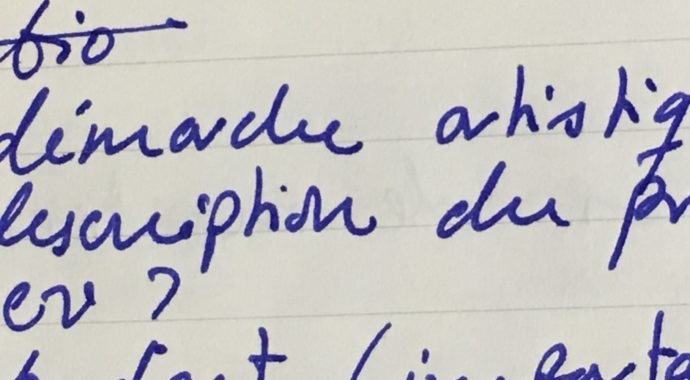 bio
démarche artistiq
description du pr
CV ?